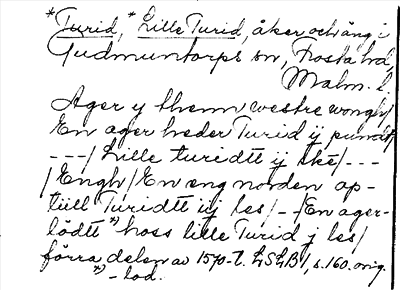 *Turid, *Lille Turid, åker och äng i
Gudmuntorps sn, Frosta hd,
Malm. l.
Ager y thenn westre wongh/
En ager heder Turid ij pund/
---/ Lille turidtt ij skè/---
/Engh/ En eng norden op-
tiill Turidtt iij les/--/En ager-
lödtt *) hoss lille Turid j les/
förra delen av 1570-t. LSLB 1, s. 160. orig.
*) - lod.